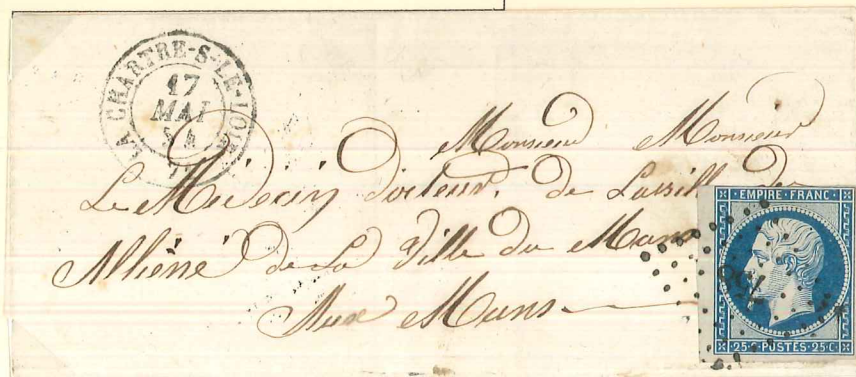 LA CHARTRE-S-LE-LOIR
17
MAI
54
Monsieur Monsieur
Le Médecin docteur de Lasille des
Alliéné de La Ville du Mans
Aux Mans
EMPIRE · FRANC ·
25 · POSTES · 25 C ·